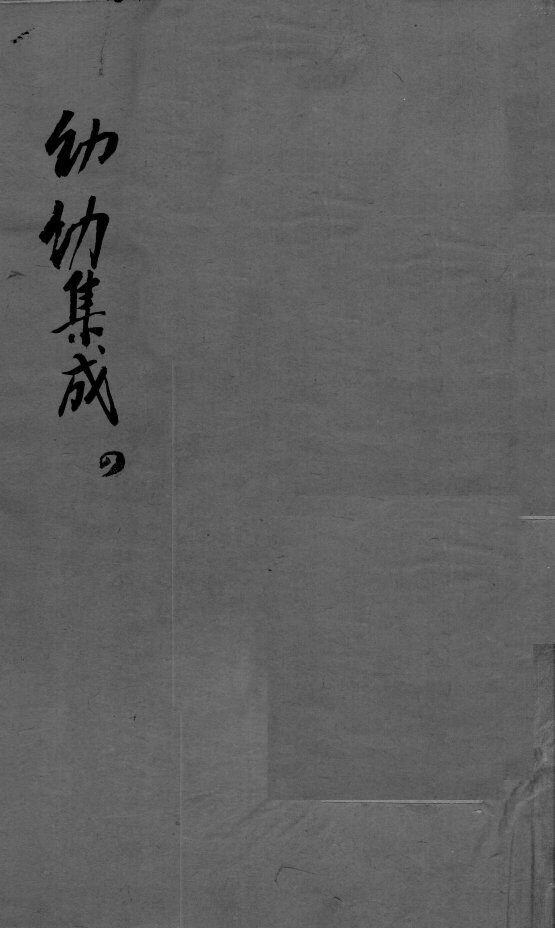 幼幼集成 四